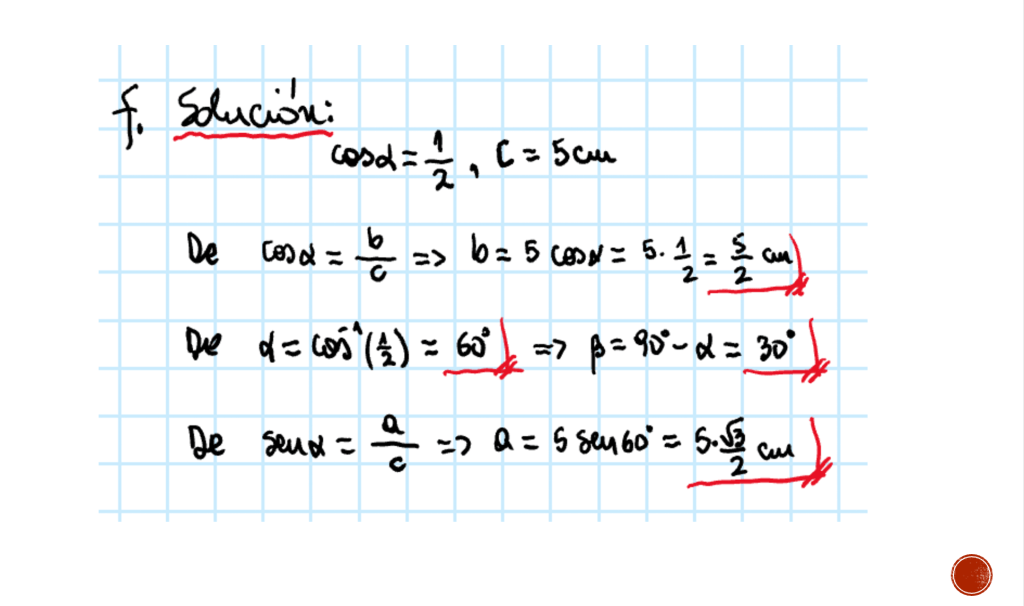 f. Solución:
cosα = 1/2, C = 5 cm
De cosα = b/c => b = 5 cosα = 5 · 1/2 = 5/2 cm
De α = cos⁻¹(1/2) = 60° => β = 90° - α = 30°
De senα = a/c => a = 5 sen60° = 5·√3/2 cm